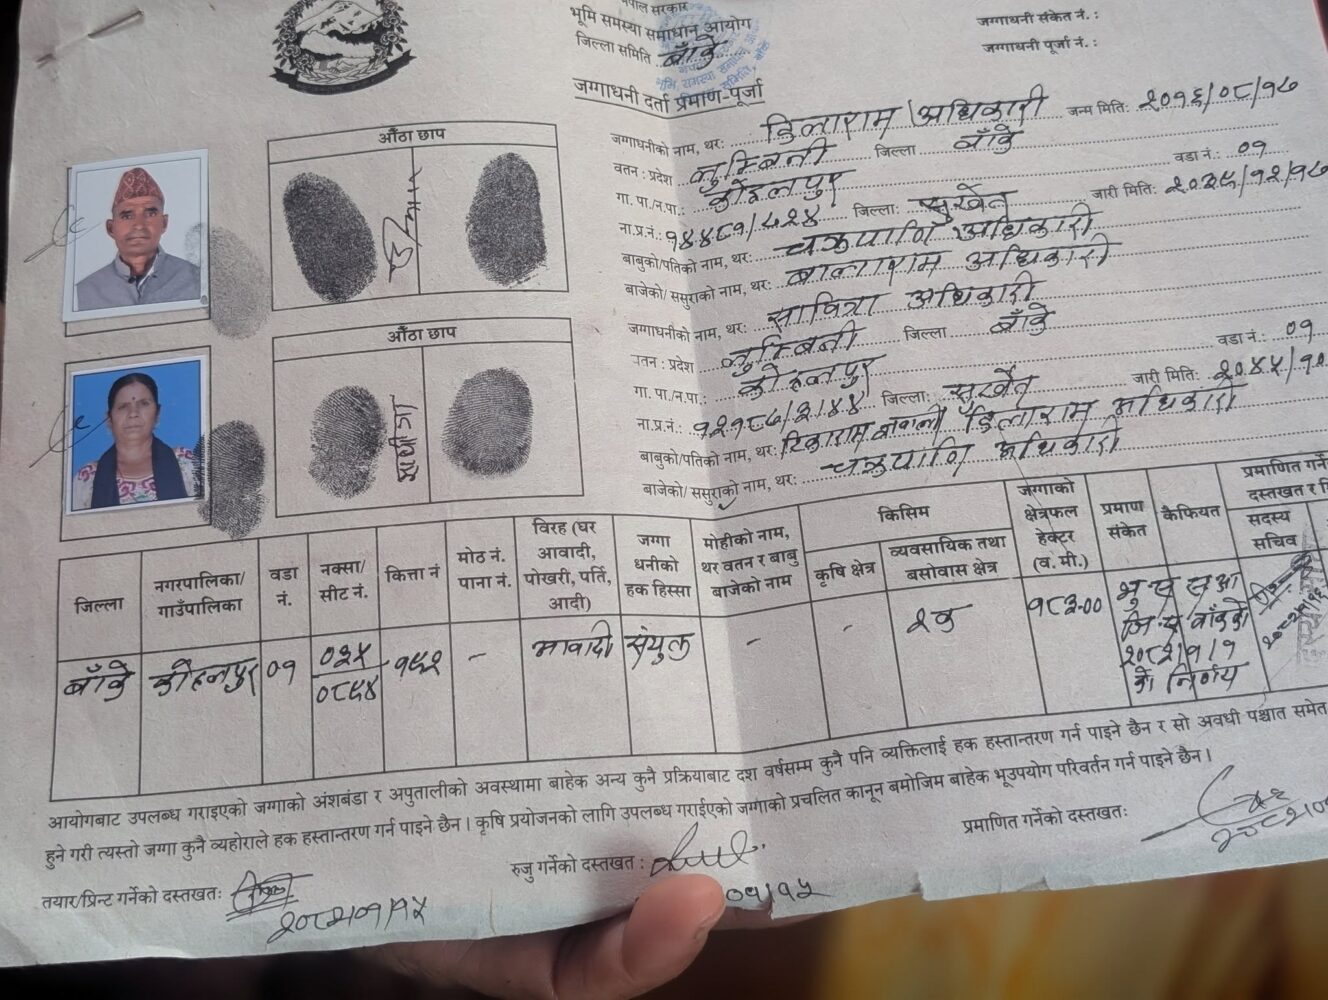 नेपाल सरकार
भूमि समस्या समाधान आयोग
जिल्ला समिति बाँके
जग्गाधनी दर्ता प्रमाण-पूर्जा
जग्गाधनी संकेत नं. :
जग्गाधनी पूर्जा नं. :
औंठा छाप
जग्गाधनीको नाम, थर: डिलाराम अधिकारी जन्म मिति: २०१६/०८/१७
वतन : प्रदेश लुम्बिनी जिल्ला बाँके
गा. पा./न.पा.: कोहलपुर वडा नं: ०१
ना.प्र.नं.: १४४८१/५२४ जिल्ला: सुर्खेत जारी मिति: २०३६/१२/१७
बाबुको/पतिको नाम, थर: चक्रपाणि अधिकारी
बाजेको/ ससुराको नाम, थर: बालाराम अधिकारी
औंठा छाप
जग्गाधनीको नाम, थर: सावित्रा अधिकारी
वतन : प्रदेश लुम्बिनी जिल्ला बाँके
गा. पा./न.पा.: कोहलपुर वडा नं: ०१
ना.प्र.नं.: १२१८७/३१४४ जिल्ला: सुर्खेत जारी मिति: २०४५/१०
बाबुको/पतिको नाम, थर: टिकाराम ज्ञवाली डिलाराम अधिकारी
बाजेको/ ससुराको नाम, थर: चक्रपाणि अधिकारी
जिल्ला नगरपालिका/ गाउँपालिका वडा नं. नक्सा/ सीट नं. कित्ता नं मोठ नं. पाना नं. विरह (घर आवादी, पोखरी, पर्ति, आदी) जग्गा धनीको हक हिस्सा मोहीको नाम, थर वतन र बाबु बाजेको नाम किसिम कृषि क्षेत्र व्यवसायिक तथा बसोवास क्षेत्र जग्गाको क्षेत्रफल हेक्टर (व. मी.) प्रमाण संकेत कैफियत प्रमाणित गर्ने दस्तखत र सदस्य सचिव
बाँके कोहलपुर ०१ ०३५ ०८६४ १६२ - आवादी संयुक्त - - २ब १८३.०० भू स स आ जि स बाँकेको २०८२/१/१ को निर्णय
आयोगबाट उपलब्ध गराइएको जग्गाको अंशबंडा र अपुतालीको अवस्थामा बाहेक अन्य कुनै प्रक्रियाबाट दश वर्षसम्म कुनै पनि व्यक्तिलाई हक हस्तान्तरण गर्न पाइने छैन र सो अवधी पश्चात समेत
हुने गरी त्यस्तो जग्गा कुनै व्यहोराले हक हस्तान्तरण गर्न पाइने छैन। कृषि प्रयोजनको लागि उपलब्ध गराईएको जग्गाको प्रचलित कानून बमोजिम बाहेक भूउपयोग परिवर्तन गर्न पाइने छैन।
तयार/प्रिन्ट गर्नेको दस्तखतः
रुजु गर्नेको दस्तखत :
प्रमाणित गर्नेको दस्तखतः